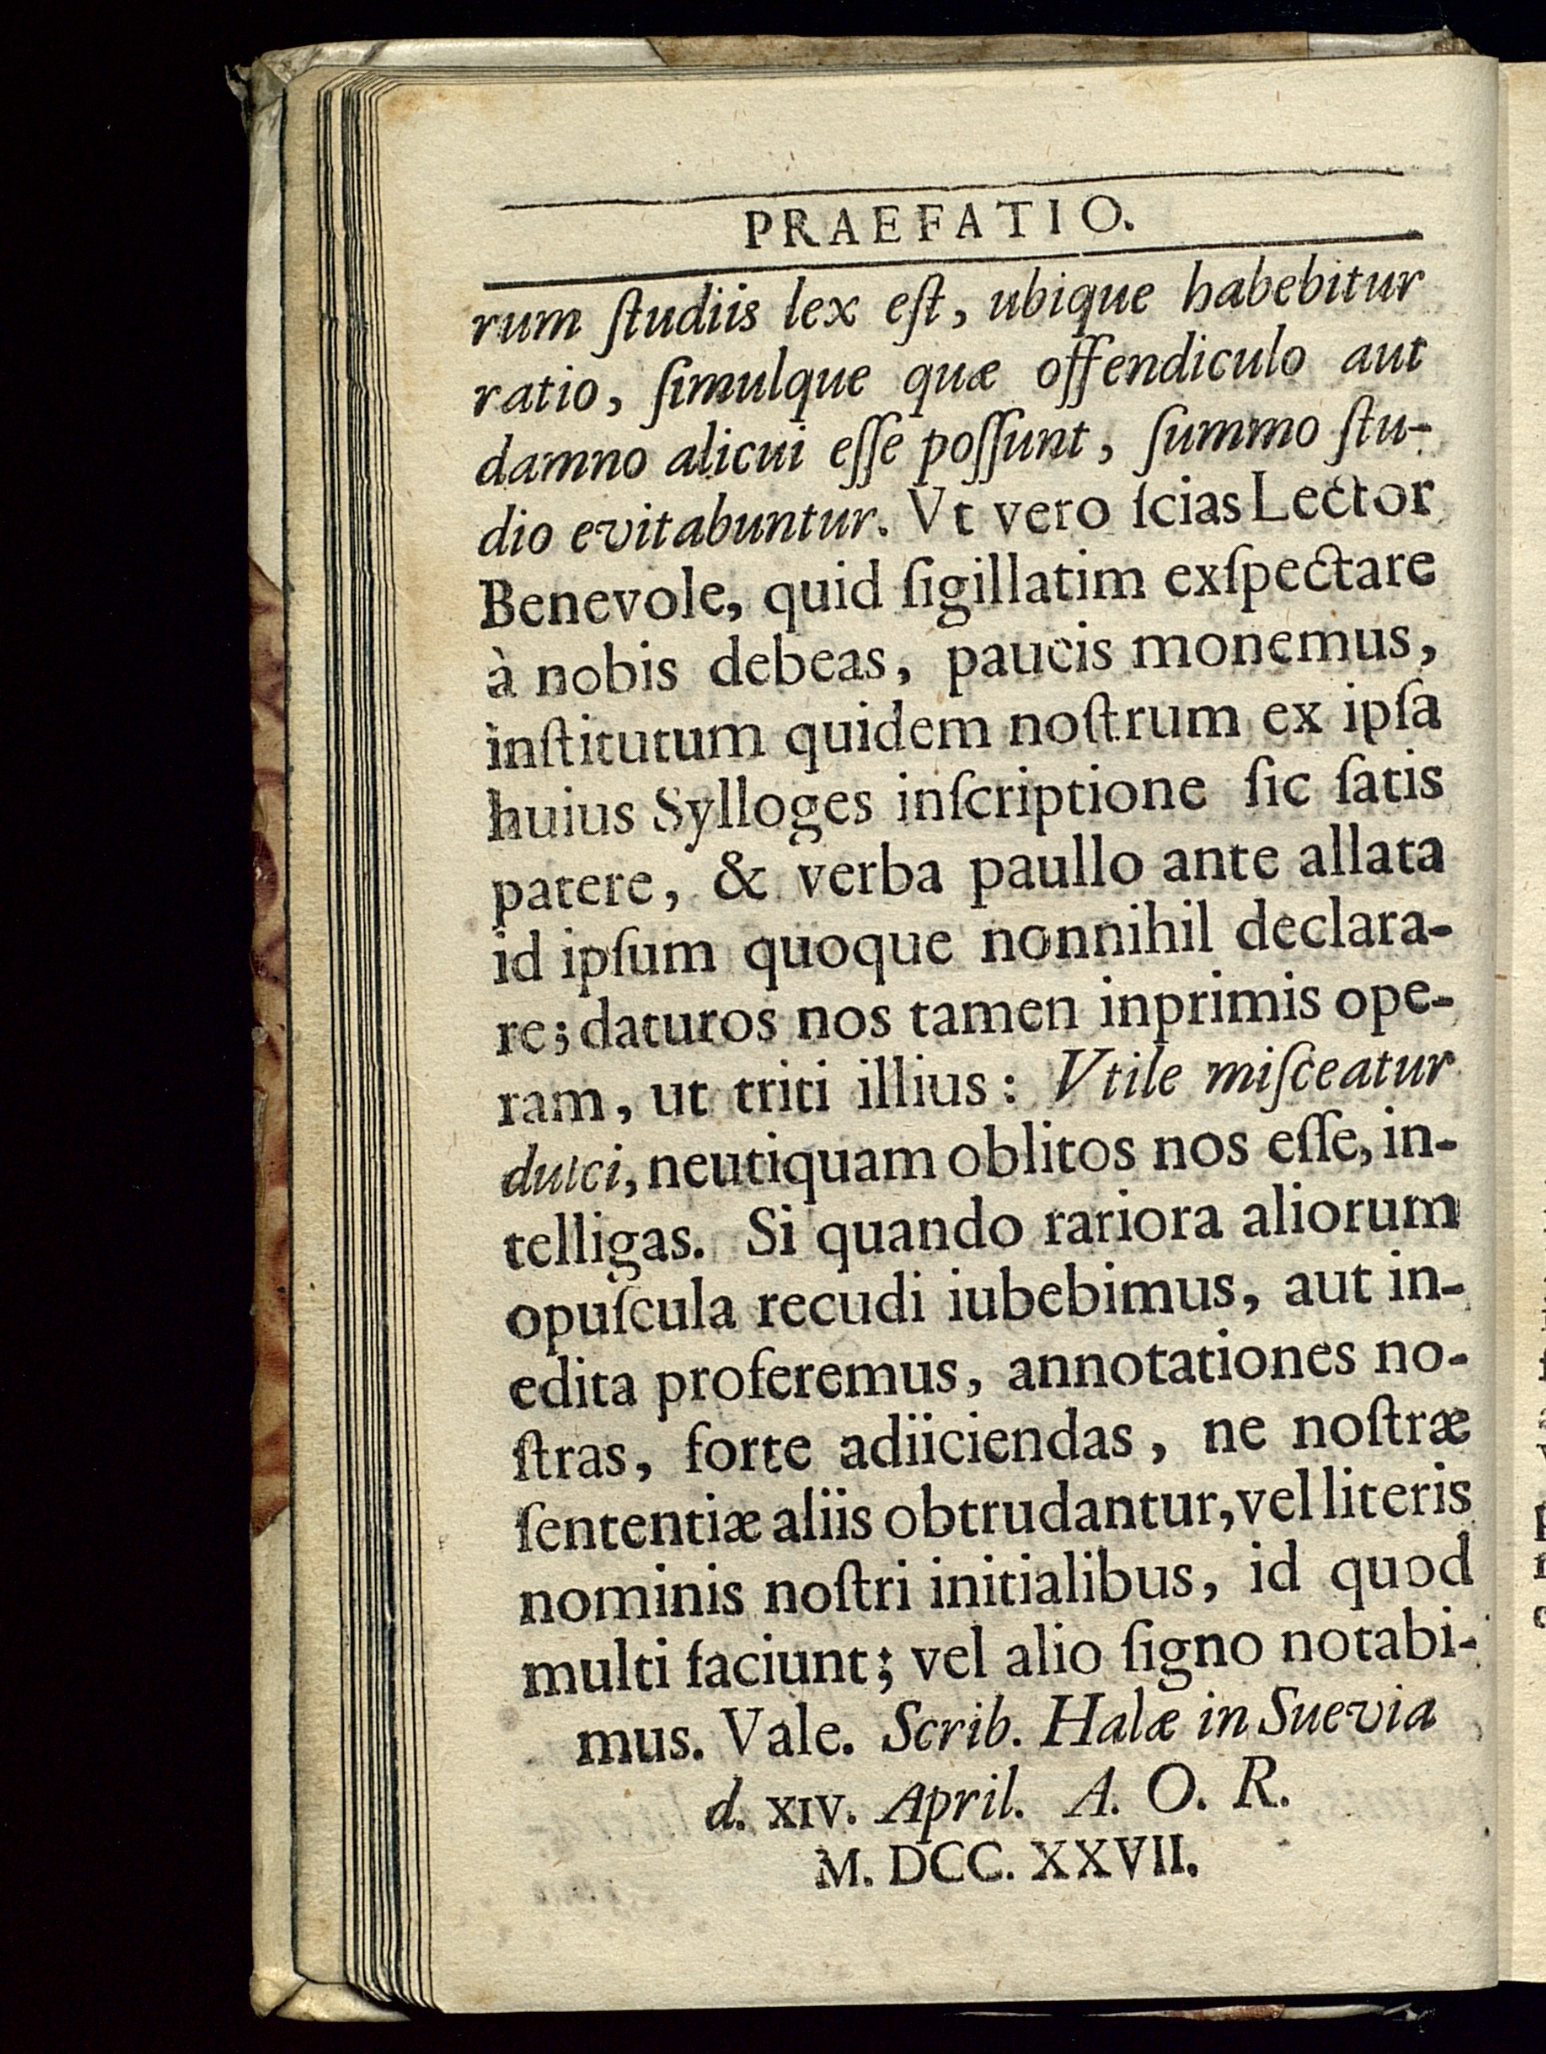 PRAEFATIO.
rum ſtudiis lex eſt, ubique habebitur
ratio, ſimulque quæ offendiculo aut
damno alicui eſſe poſſunt, ſummo ſtu-
dio evitabuntur. Vt vero ſcias Lector
Benevole, quid ſigillatim exſpectare
à nobis debeas, paucis monemus,
inſtitutum quidem noſtrum ex ipſa
huius Sylloges inſcriptione ſic ſatis
patere, & verba paullo ante allata
id ipſum quoque nonnihil declara-
re; daturos nos tamen inprimis ope-
ram, ut triti illius: Vtile miſceatur
dulci, neutiquam oblitos nos eſſe, in-
telligas. Si quando rariora aliorum
opuſcula recudi iubebimus, aut in-
edita proferemus, annotationes no-
ſtras, forte adiiciendas, ne noſtræ
ſententiæ aliis obtrudantur, vel literis
nominis noſtri initialibus, id quod
multi faciunt; vel alio ſigno notabi-
mus. Vale. Scrib. Halæ in Suevia
d. XIV. April. A. O. R.
M. DCC. XXVII.